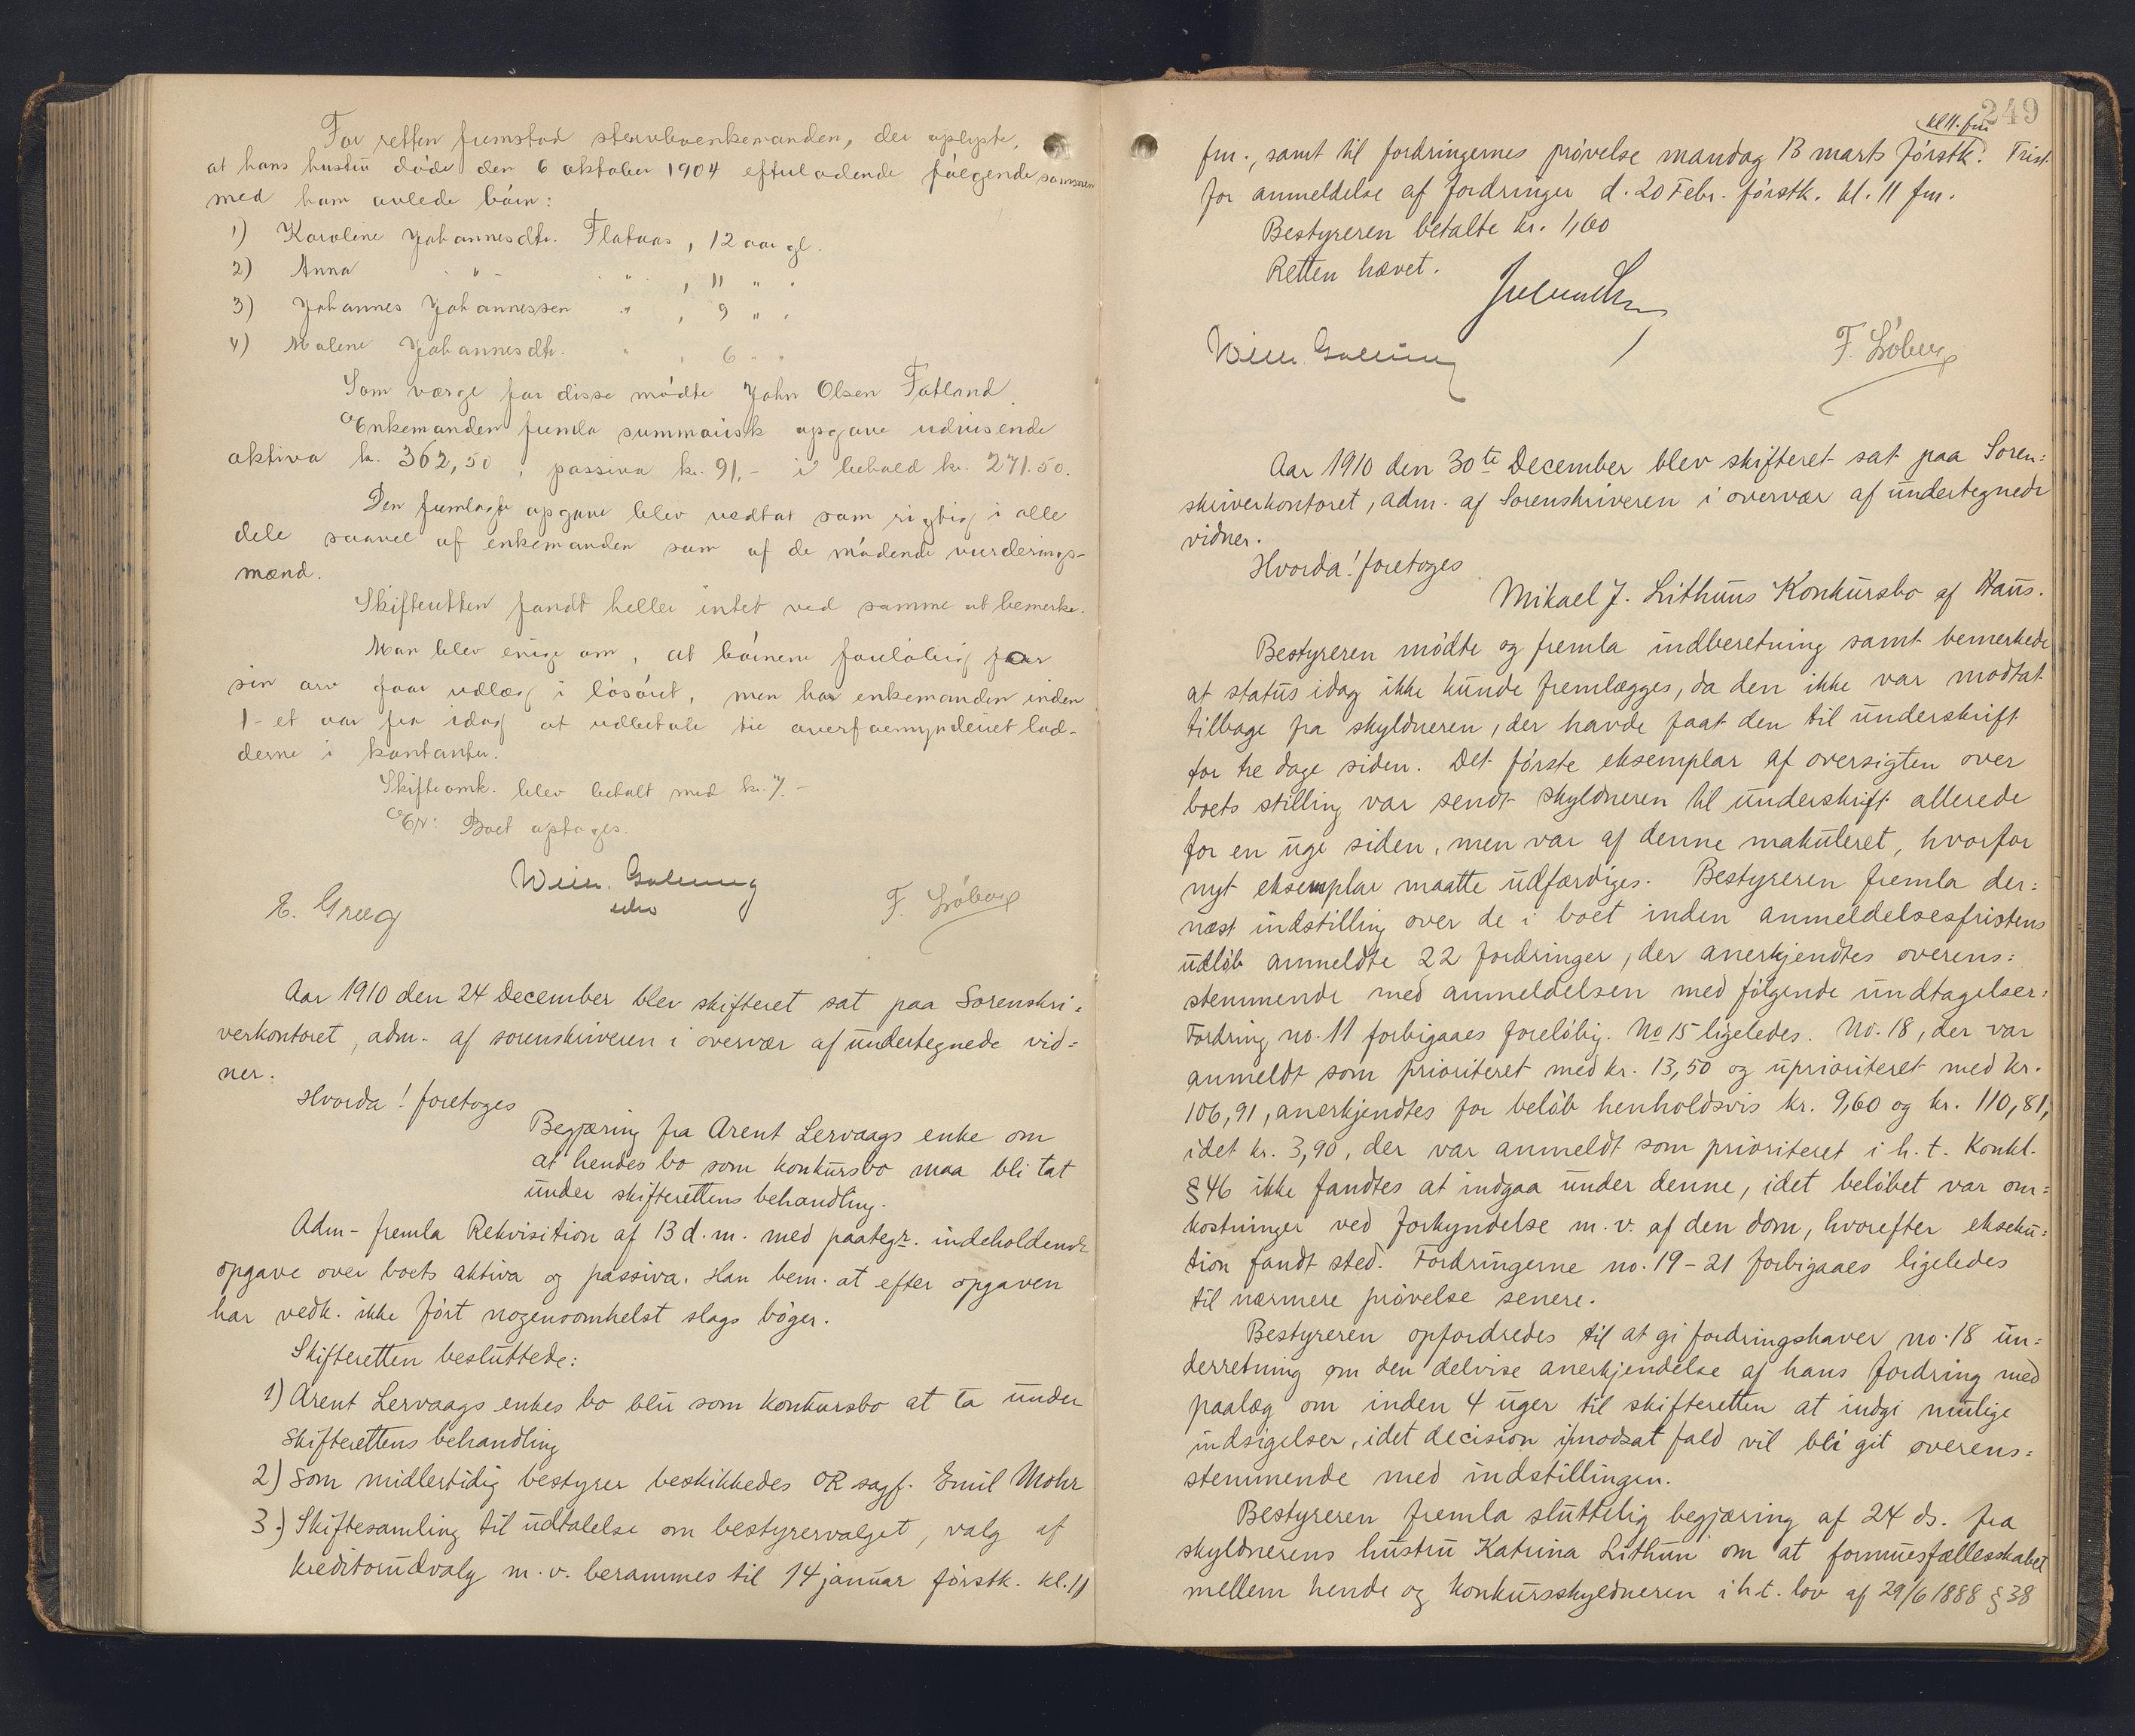 For retten fremstod stervboenkemanden, der oplyste,
at hans hustru døde den 6 oktober 1904 efterladende følgende sammen
med ham avlede børn:
1) Karoline Johannesdtr. Flataas, 12 aar gl.
2) Anna " " , 11 " "
3) Johannes Johannessen " , 9 " "
4) Malene Johannesdtr. " , 6 " "
Som værge for disse mødte John Olsen Fatland.
Enkemanden fremla summarisk opgave udvisende
aktiva kr. 362,50, passiva kr. 91,- i behold kr. 271.50.
Den fremlagte opgave blev vedtat som rigtig i alle
dele saavel af enkemanden som af de mødende vurderings-
mænd.
Skifteretten fandt heller intet ved samme at bemerke.
Man blev enige om, at børnene foreløbig for
sin arv faar udlæg i løsøret, men har enkemanden inden
1 - et aar fra idag at udbetale til overformynderiet lod-
derne i kontanter.
Skifteomk. blev betalt med kr. 7.-
Er: Boet optages.
E. Grieg
F. Løberg
Aar 1910 den 24 December blev skifteret sat paa Sorenskri=
verkontoret, adm. af sorenskriveren i overvær af undertegnede vid=
ner.
Hvorda! foretoges
Begjæring fra Arent Lervaags enke om
at hendes bo som konkursbo maa bli tat
under skifterettens behandling.
Adm- fremla Rekvisition af 13 d. m. med paategn. indeholdende
opgave over boets aktiva og passiva. Han bem. at efter opgaven
har vedk. ikke ført nogensomhelst slags bøger.
Skifteretten besluttede:
1) Arent Lervaags enkes bo blir som konkursbo at ta under
skifterettens behandling
2) Som midlertidig bestyrer beskikkedes OR sagf. Emil Mohr
3.) Skiftesamling til udtalelse om bestyrervalget, valg af
kreditorudvalg m. v. berammes til 14 januar førstk. kl. 11
249
kl 11. fm
fm., samt til fordringernes prøvelse mandag 13 marts førstk. Frist
for anmeldelse af fordringer d. 20 Febr. førstk. kl. 11 fm.
Bestyreren betalte kr. 1,60
Retten hævet.
F. Løberg
Aar 1910 den 30te December blev skifteret sat paa Soren=
skriverkontoret, adm. af Sorenskriveren i overvær af undertegnede
vidner.
Hvorda! foretoges
Mikael J. Lithuns Konkursbo af Haus.
Bestyreren mødte og fremla indberetning samt bemerkede
at status idag ikke kunde fremlægges, da den ikke var modtat
tilbage fra skyldneren, der havde faat den til underskrift
for tre dage siden. Det første eksemplar af oversigten over
boets stilling var sendt skyldneren til underskrift allerede
for en uge siden, men var af denne makuleret, hvorfor
nyt eksemplar maatte udfærdiges. Bestyreren fremla der=
næst indstilling over de i boet inden anmeldelsesfristens
udløb anmeldte 22 fordringer, der anerkjendtes overens=
stemmende med anmeldelsen med følgende undtagelser:
Fordring no. 11 forbigaaes foreløbig. No 15 ligeledes. No. 18, der var
anmeldt som prioriteret med kr. 13,50 og uprioriteret med kr.
106,91, anerkjendtes for beløb henholdsvis kr. 9,60 og kr. 110,81,
idet kr. 3,90, der var anmeldt som prioriteret i h. t. Konkl.
§ 46 ikke fandtes at indgaa under denne, idet beløbet var om=
kostninger ved forkyndelse m. v. af den dom, hvorefter ekseku=
tion fandt sted. Fordringerne no. 19 - 21 forbigaaes ligeledes
til nærmere prøvelse senere.
Bestyreren opfordredes til at gi fordringshaver no. 18 un=
derretning om den delvise anerkjendelse af hans fordring med
paalæg om inden 4 uger til skifteretten at indgi mulige
indsigelser, idet decision i modsat fald vil bli git overens=
stemmende med indstillingen.
Bestyreren fremla sluttelig begjæring af 24 ds. fra
skyldnerens hustru Katrina Lithun om at formuesfællesskabet
mellem hende og konkursskyldneren i h. t. lov af 29/6 1888 § 38